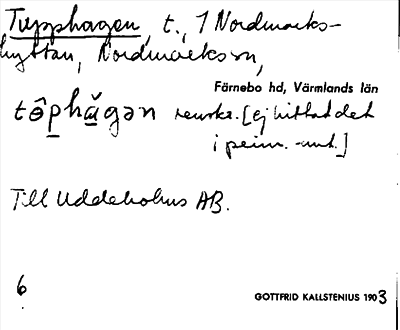 Tupphagen, t., 1 Nordmarks-
hyttan, Nordmarks sn,
Färnebo hd, Värmlands län
tə̂phǎgən [ej hittat det
i prim.
Till Uddeholms AB.
6
GOTTFRID KALLSTENIUS 1903